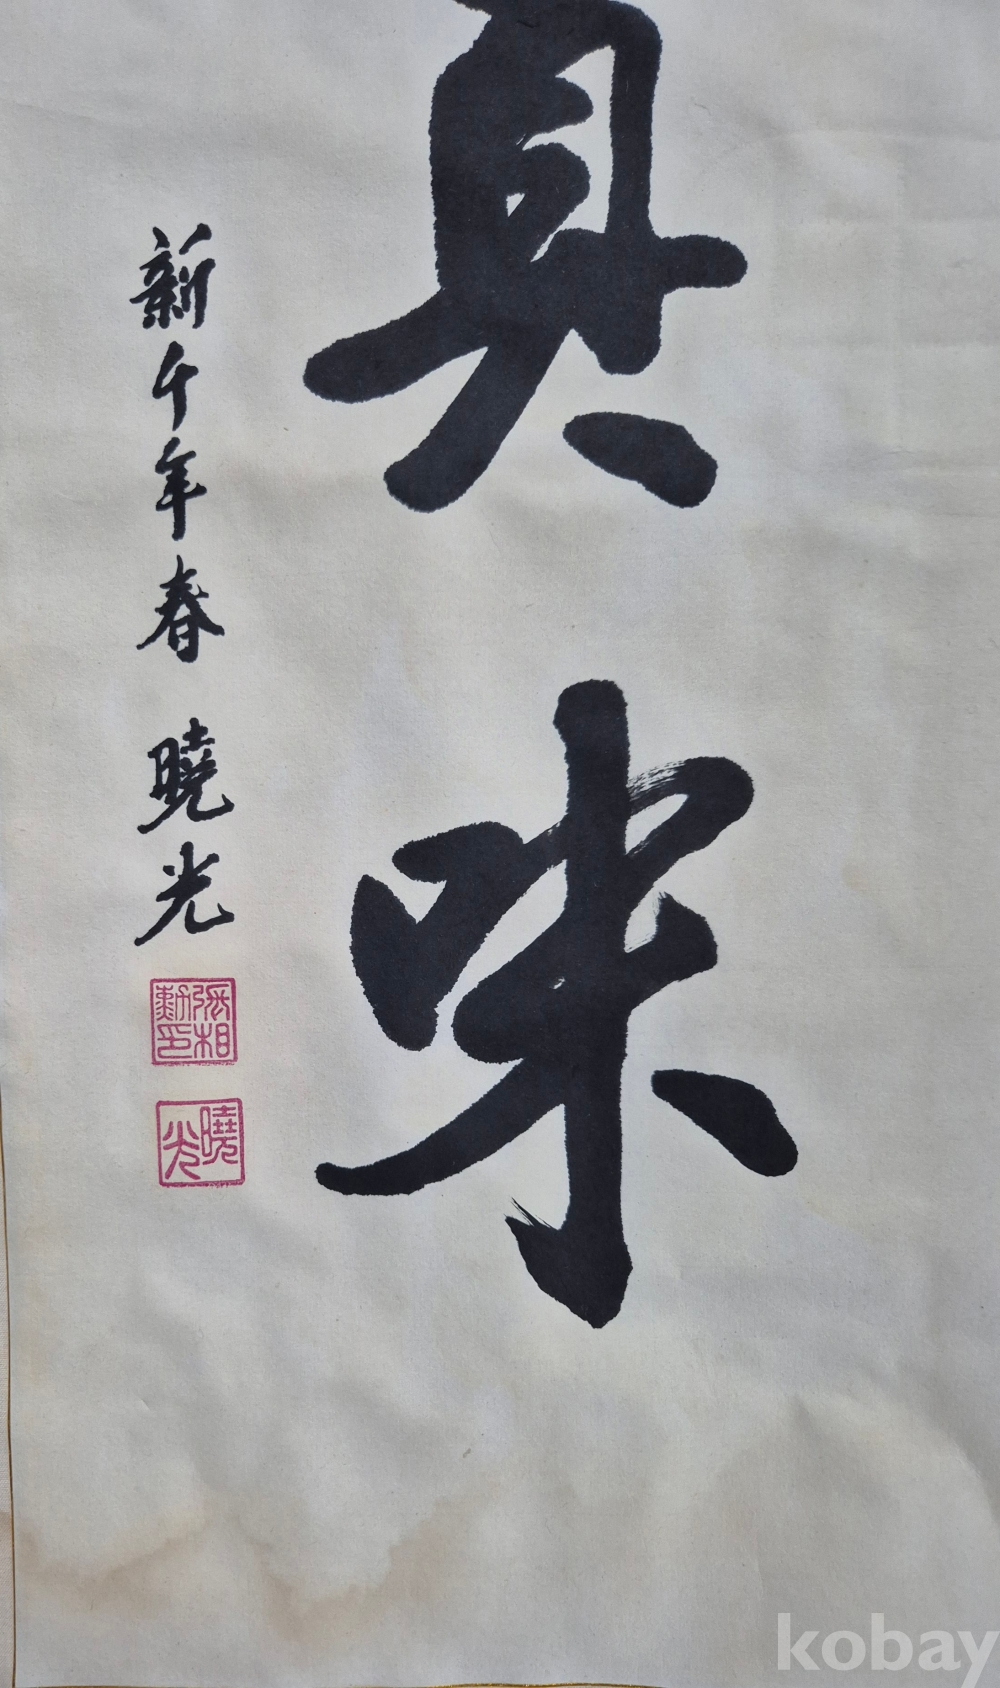 真味
新千年春 曉光
張相勳印
曉光
kobay